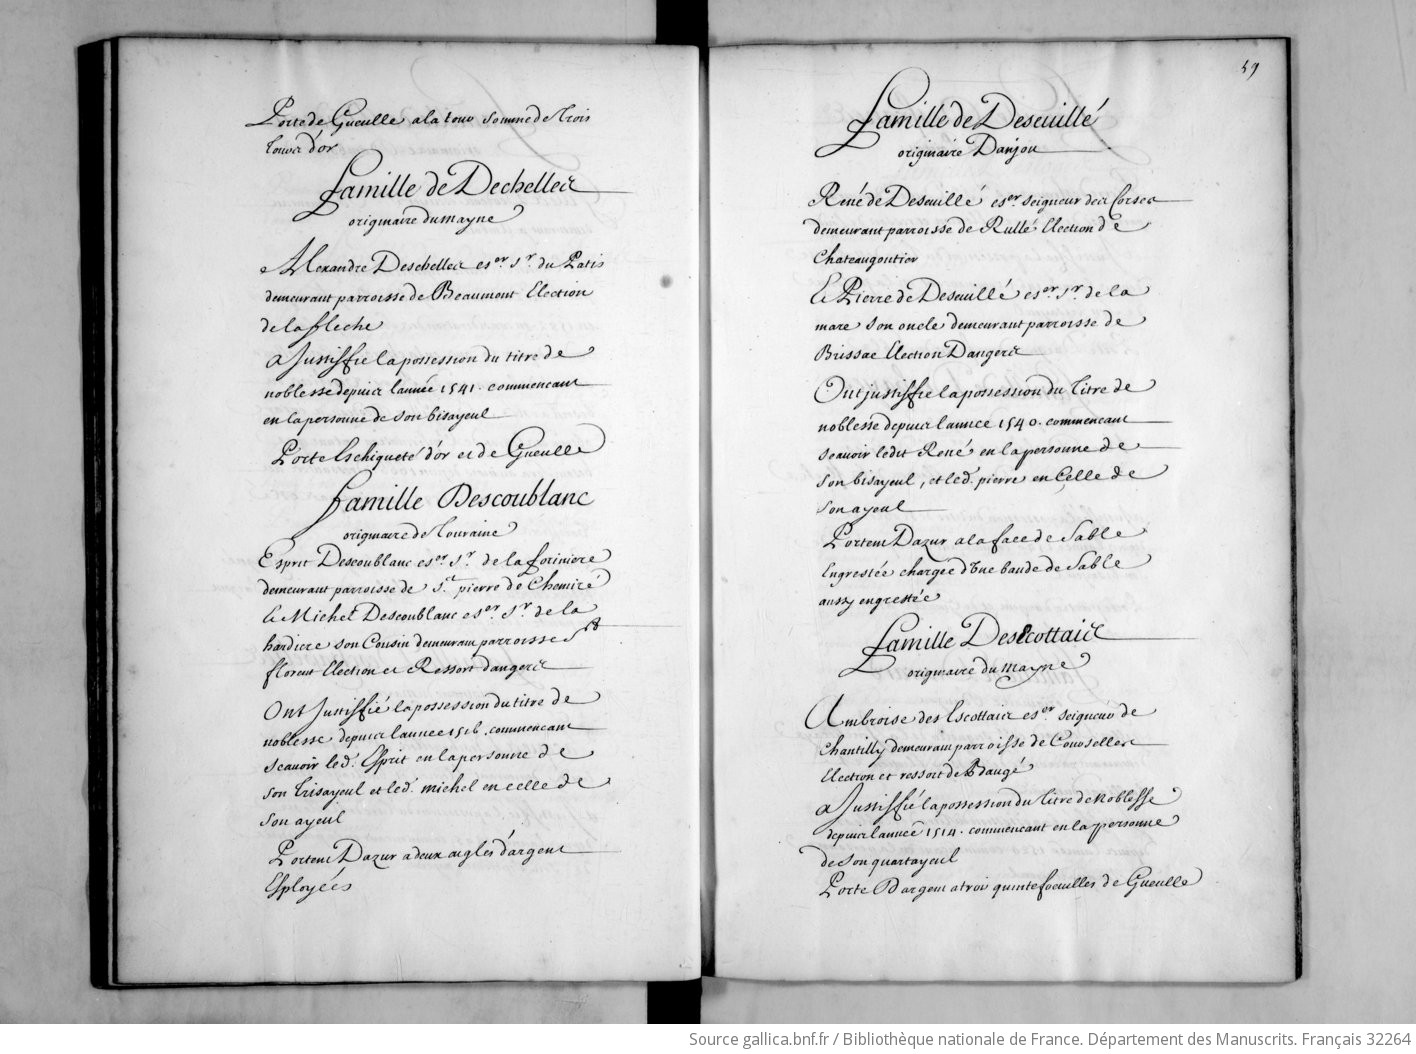 Porte de Gueulle a la tour sommé de Trois
Tours d'or
famille de Dechelles
originaire du mayne
Alexandre Deschelles eser. sr. du Patis
demeurant parroisse de Beaumont Election
de la fleche
a Justiffie la possession du titre de
noblesse depuis lannée 1541. commencant
en la personne de son bisayeul
Porte Eschiqueté d'or et de Gueulle
famille Descoublanc
originaire de Touraine
Esprit Descoublanc eser sr. de la foriniere
demeurant parroisse de st. pierre de Chemiré
Et Michel Descoublanc eser sr de la
hardiere son Cousin demeurant parroisse st
florent Election et Ressort dangers
Ont Justiffié la possession du titre de
noblesse depuis lannee 1516. commencant
Scauoir led. Esprit en la personne de
son trisayeul et led. michel en celle de
son ayeul
Portent Dazur a deux aigles d'argent
Esployées
59
famille de Deseuillé
originaire Danjou
René de Deseuillé eser seigneur des Corses
demeurant parroisse de Rullé Election de
Chateaugontier
Et Pierre de Deseuillé eser sr. de la
mare son oncle demeurant parroisse de
Brissac Election Dangers
Ont justiffie la possession du Titre de
noblesse depuis lannee 1540. commencant
scauoir ledit René en la personne de
son bisayeul, et led. pierre en Celle de
son ayeul
Portent Dazur a la face de Sable
Engreslée chargée d'Une bande de Sable
aussy engreslée
famille Descottais
originaire du mayne
Ambroise des Escottais eser. seigneur de
Chantilly demeurant parroisse de Couoselles
Election et ressort de Baugé
a Justiffié la possession du titre de Noblesse
depuis lannée 1514. commencant en la personne
de son quartayeul
Porte D'argent a trois quintefoeuilles de Gueulle
Source gallica.bnf.fr / Bibliothèque nationale de France. Département des Manuscrits. Français 32264